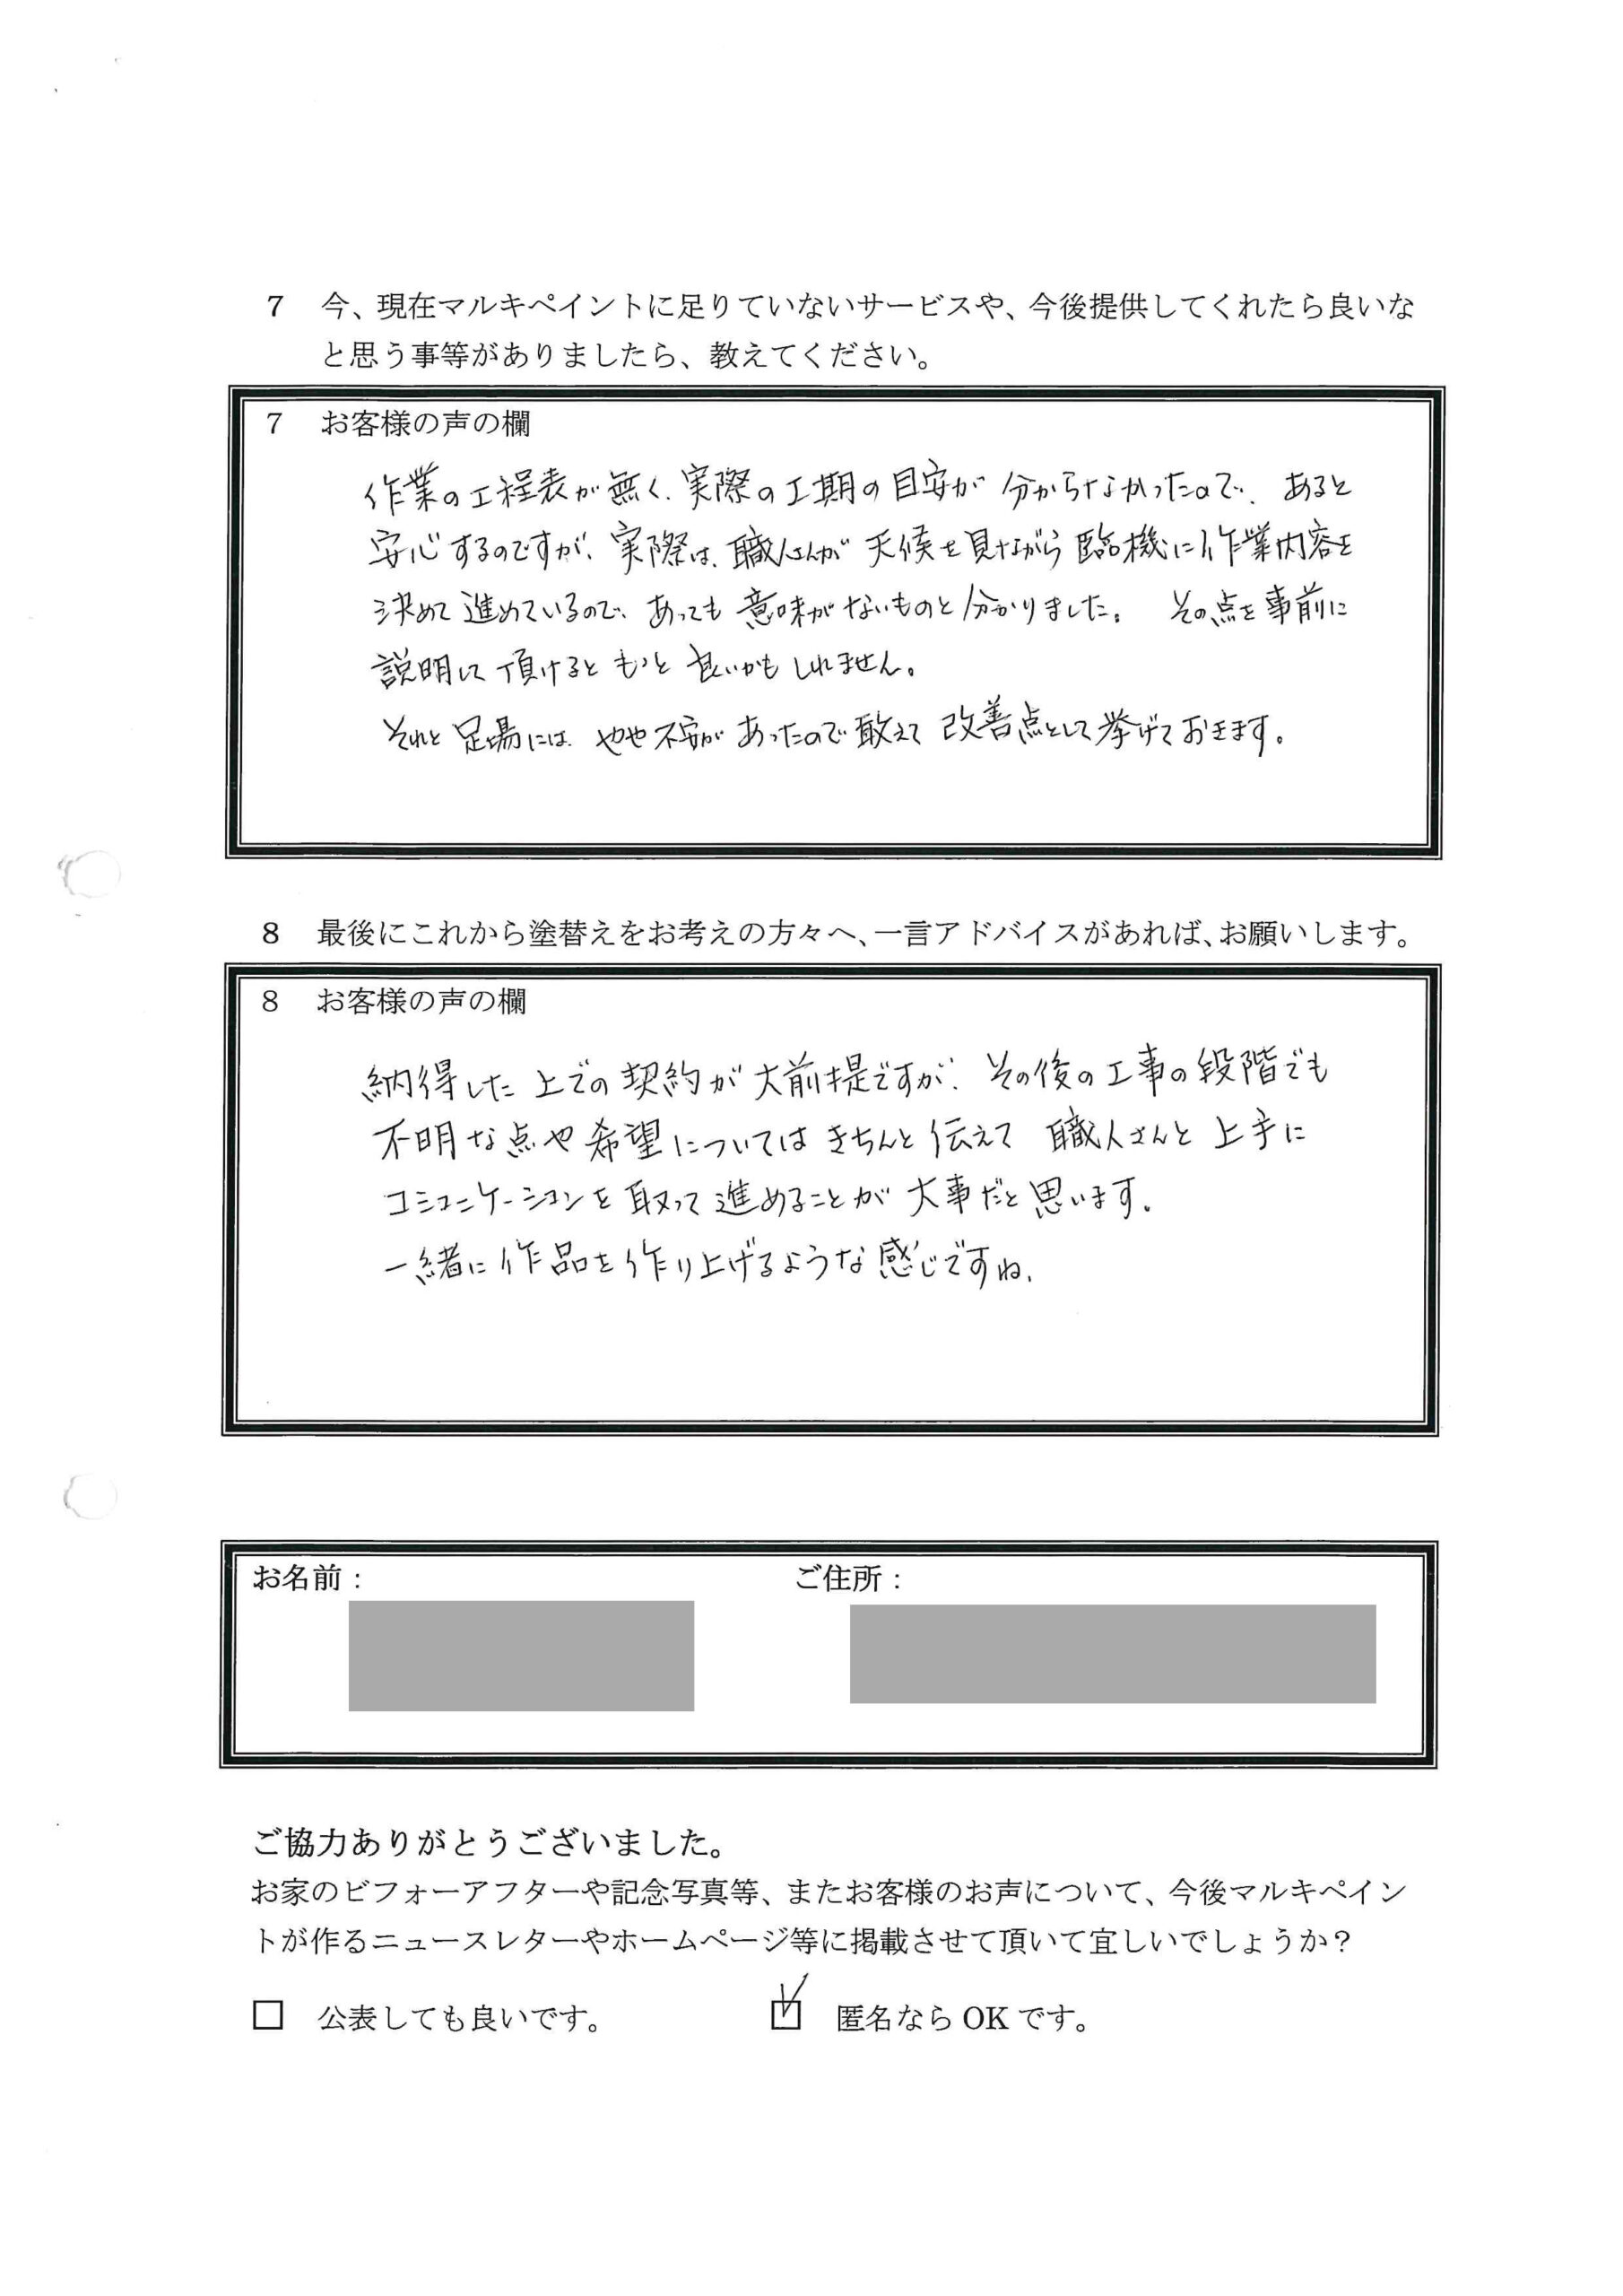 7 今、現在マルキペイントに足りていないサービスや、今後提供してくれたら良いな
と思う事等がありましたら、教えてください。
7 お客様の声の欄
作業の工程表が無く、実際の工期の目安が分からなかったので、あると
安心するのですが、実際は、職人さんが天候を見ながら臨機に作業内容を
決めて進めているので、あっても意味がないものと分かりました。 その点を事前に
説明して頂けるともっと良いかもしれません。
それと足場には、やや不安があったので敢えて改善点として挙げておきます。
8 最後にこれから塗替えをお考えの方々へ、一言アドバイスがあれば、お願いします。
8 お客様の声の欄
納得した上での契約が大前提ですが、その後の工事の段階でも
不明な点や希望についてはきちんと伝えて 職人さんと上手に
コミュニケーションを取って進めることが大事だと思います。
一緒に作品を作り上げるような感じですね。
お名前： ご住所：
ご協力ありがとうございました。
お家のビフォーアフターや記念写真等、またお客様のお声について、今後マルキペイン
トが作るニュースレターやホームページ等に掲載させて頂いて宜しいでしょうか？
□ 公表しても良いです。 ☑ 匿名なら OK です。